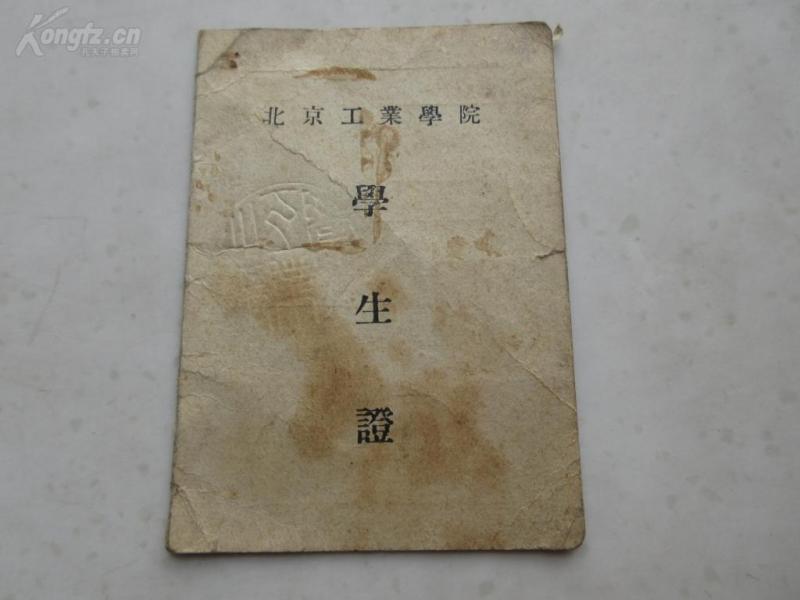 Kongfz.cn
孔夫子拍卖网
北京工業學院
學
生
證